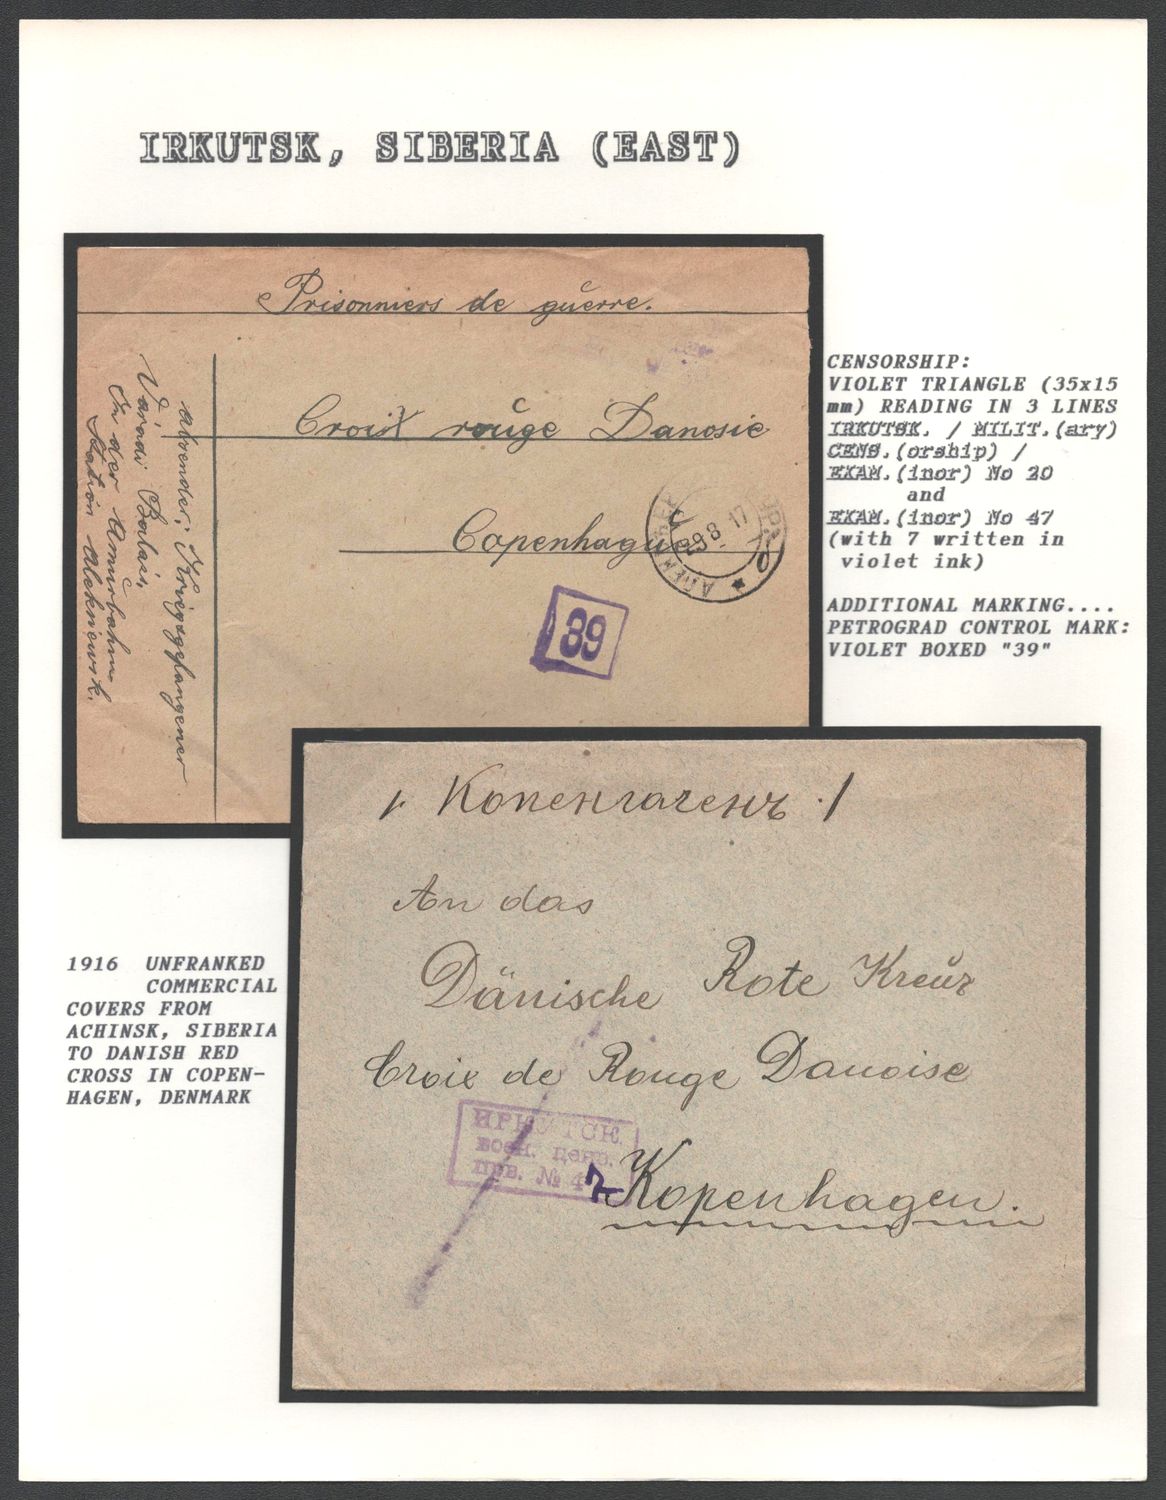 IRKUTSK, SIBERIA (EAST)
Prisonniers de guerre.
Croix rouge Danosie
Copenhague
29 8 17
39
Absender: Kriegsgefangener
Váradi Balasi,
An der Amurbahn
Station Alekniewsk.
CENSORSHIP:
VIOLET TRIANGLE (35x15
mm) READING IN 3 LINES
IRKUTSK. / MILIT.(ary)
CENS.(orship) /
EXAM.(inor) No 20
and
EXAM.(inor) No 47
(with 7 written in
violet ink)
ADDITIONAL MARKING....
PETROGRAD CONTROL MARK:
VIOLET BOXED "39"
1916 UNFRANKED
COMMERCIAL
COVERS FROM
ACHINSK, SIBERIA
TO DANISH RED
CROSS IN COPEN-
HAGEN, DENMARK
г. Копенгагенъ
An das
Dänische Rote Kreuz
Croix de Rouge Danoise
Kopenhagen.
ИРКУТСК.
воен. ценз.
№ 47